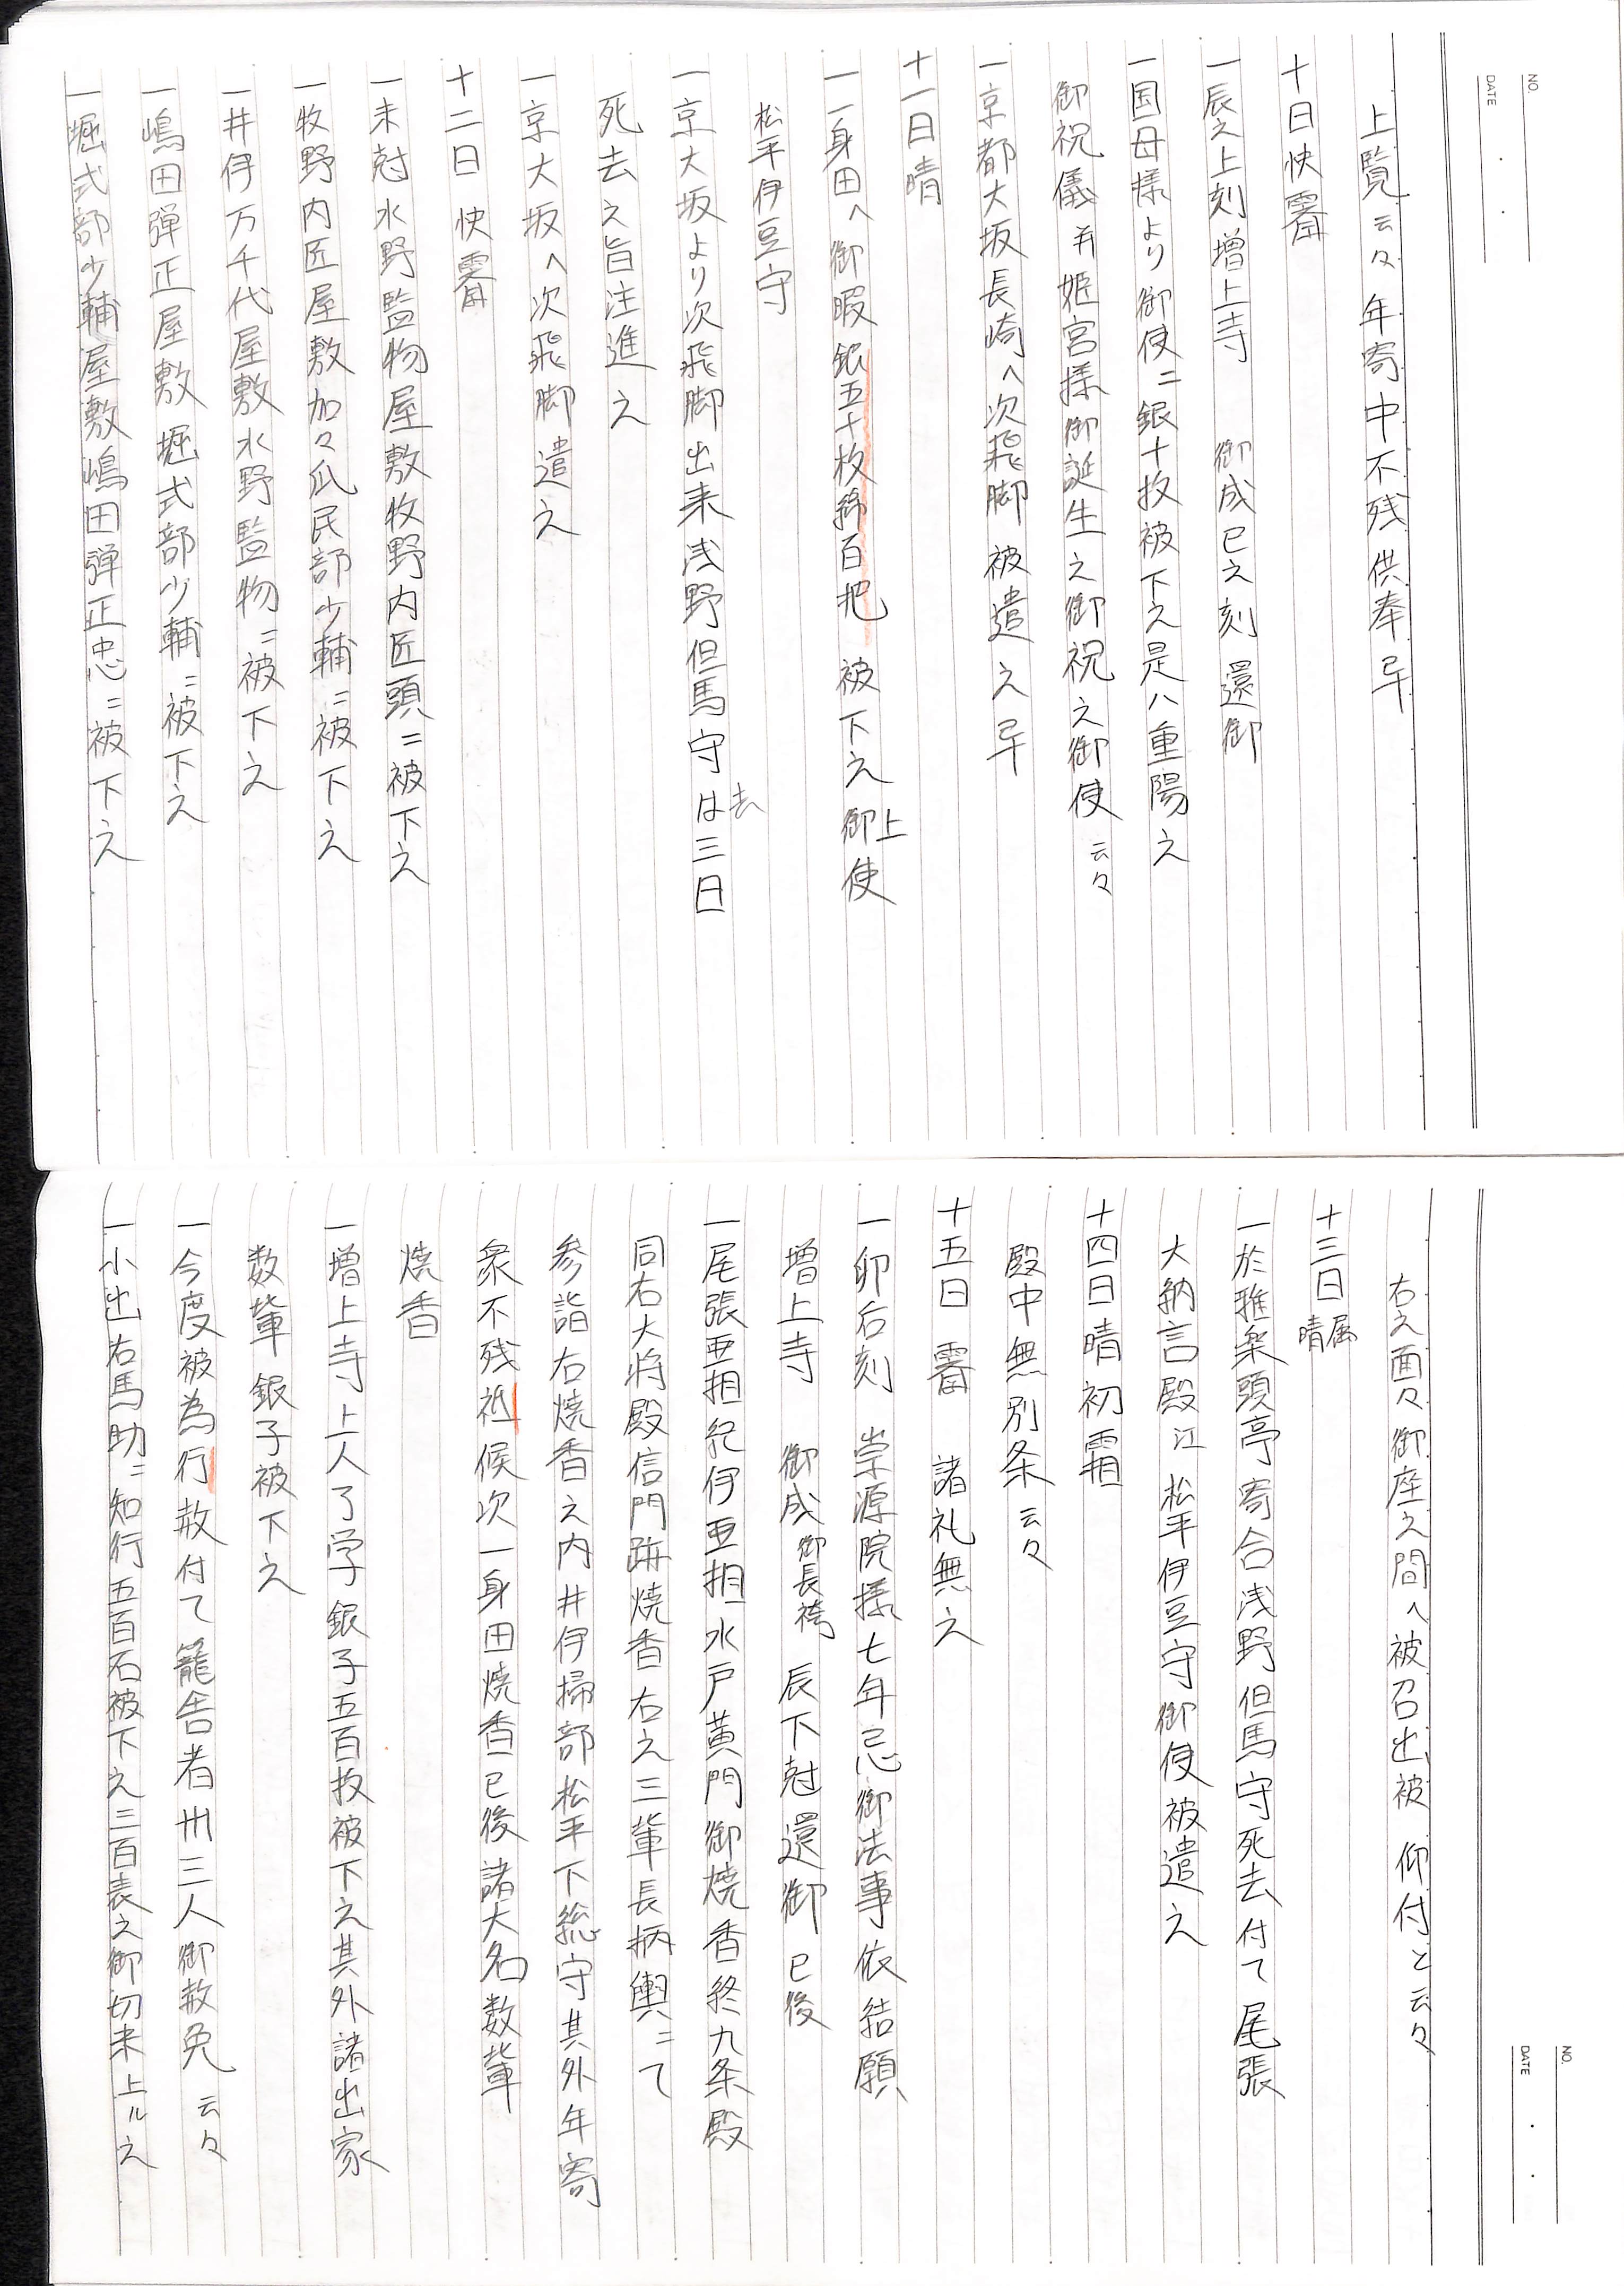 NO.
DATE
上覧云々年寄中不残供奉畢
十日快霽
一辰之上刻増上寺 御成巳之刻還御
一国母様より御使ニ銀十枚被下之是ハ重陽之
御祝儀并姫宮様御誕生之御祝之御使云々
一京都大坂長崎へ次飛脚被遣之畢
十一日晴
一一身田へ御暇銀五十枚綿百把被下之御上使
松平伊豆守
一京大坂より次飛脚出来浅野但馬守は去三日
死去之旨注進之
一京大坂へ次飛脚遣之
十二日 快霽
一未尅水野監物屋敷牧野内匠頭ニ被下之
一牧野内匠屋敷加々爪民部少輔ニ被下之
一井伊万千代屋敷水野監物ニ被下之
一嶋田弾正屋敷堀式部少輔ニ被下之
一堀式部少輔屋敷嶋田弾正忠ニ被下之
NO.
DATE
右之面々御座之間へ被召出被 仰付と云々
十三日属晴
一於雅楽頭亭寄合浅野但馬守死去付て尾張
大納言殿江松平伊豆守御使被遣之
十四日晴初霜
殿中無別条云々
十五日 霽 諸礼無之
一卯后刻 崇源院様七年忌御法事依結願
増上寺 御成御長袴 辰下尅還御 已後
一尾張亜相紀伊亜相水戸黄門御焼香終九条殿
同右大将殿信門跡焼香右之三輩長柄輿ニて
参詣右焼香之内井伊掃部松平下総守其外年寄
衆不残祗候次一身田焼香已後諸大名数輩
焼香
一増上寺上人了学銀子五百枚被下之其外諸出家
数輩銀子被下之
一今度被為行赦付て籠舎者卅三人御赦免云々
一小出右馬助ニ知行五百石被下之三百表之御切米上ル之